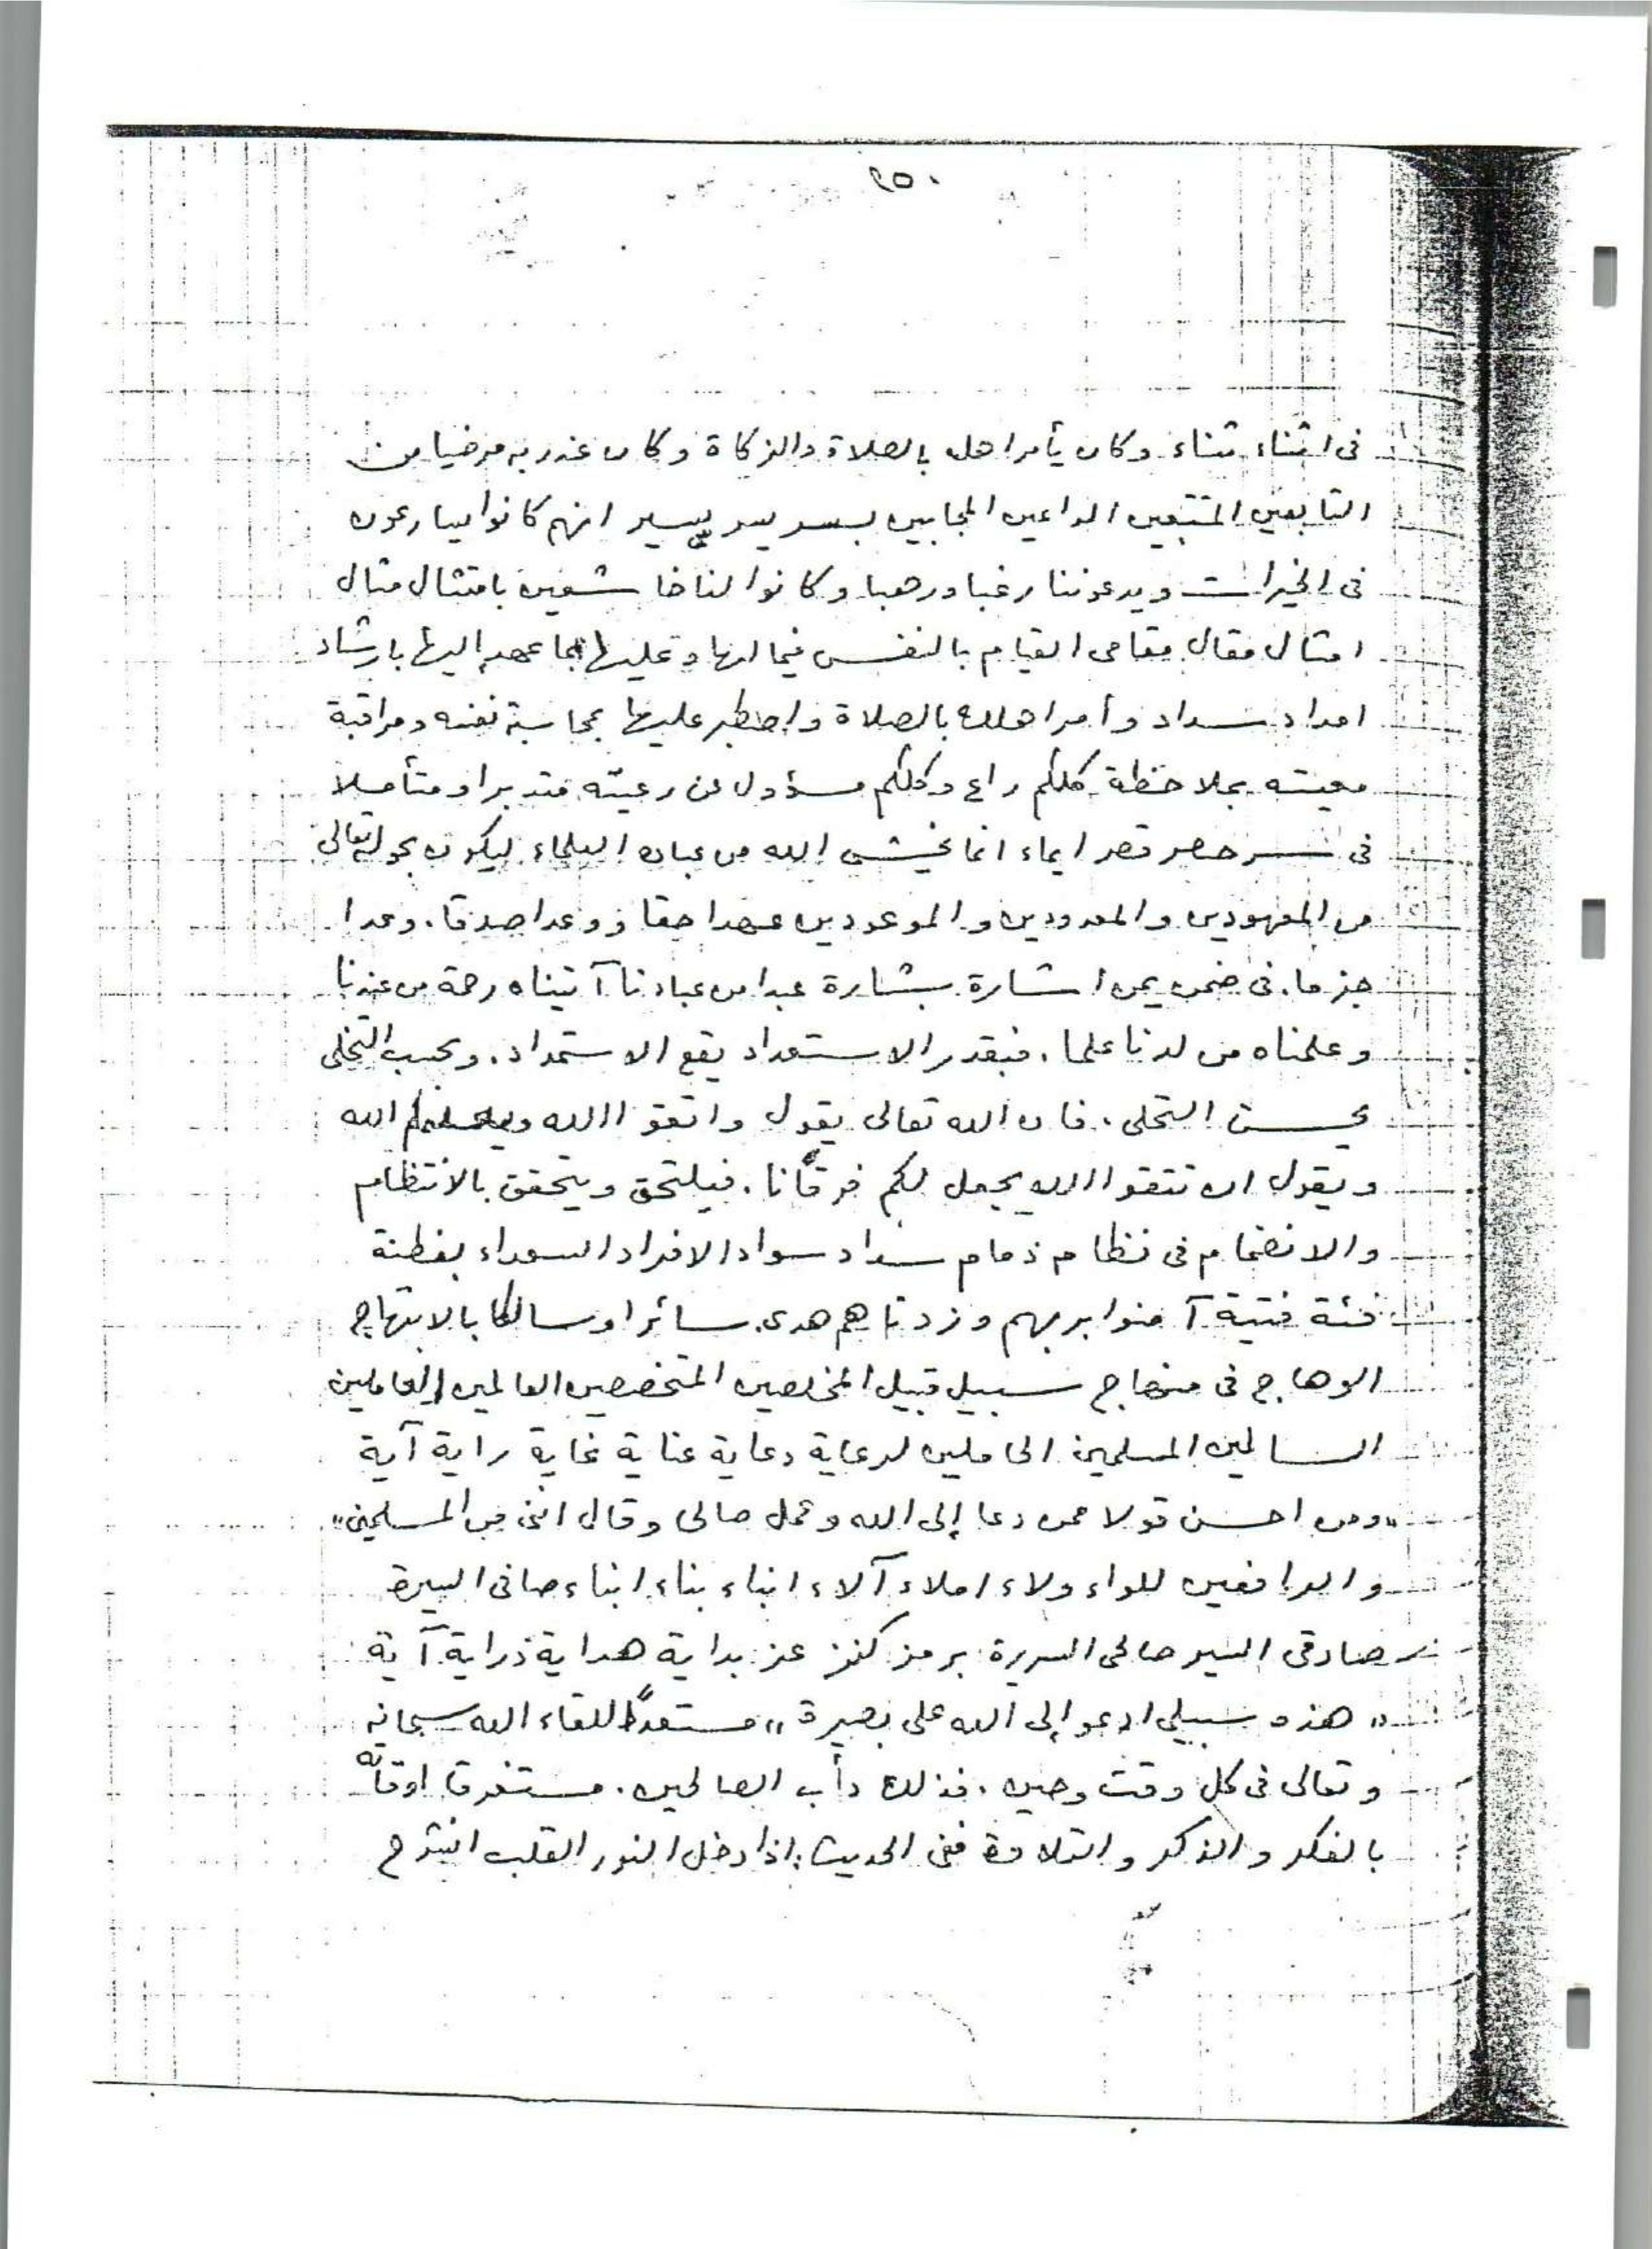 ٢٥٠
فى اثناء ثناء وكان يأمر اهله بالصلاة والزكاة وكان عند ربه مرضيا من
التابعين المتبعين الداعين المجابين بسر يسر يسير انهم كانوا يسارعون
فى الخيرات ويدعوننا رغبا ورهبا وكانوا لنا خاشعين بامتثال مثال
امتثال مقال مقامى القيام بالنفس فيما لها وعليها بما عهد إليها بارشاد
امداد سداد وأمر اهلك بالصلاة واصطبر عليها بمحاسبة نفسه ومراقبة
معيته بملاحظة كلكم راع وكلكم مسؤول عن رعيته متدبرا ومتأملا
فى سر حصر قصر ايماء انما يخشى الله من عباده العلماء ليكون بحوله تعالى
من المعهودين والمعدودين والموعودين عهدا حقا ووعدا صدقا. وعدا
جزما. فى ضمن يمن اشارة بشارة عبدا من عبادنا آتيناه رحمة من عندنا
وعلمناه من لدنا علما. فبقدر الاستعداد يقع الاستمداد. وبحسب التخلى
يحسن التحلى. فان الله تعالى يقول واتقوا الله ويعلمكم الله
ويقول ان تتقوا الله يجعل لكم فرقانا. فيلتحق ويتحقق بالانتظام
والانضمام فى نظام ذمام سداد سواد الافراد السعداء بفطنة
فئة فتية آمنوا بربهم وزدناهم هدى. سائرا وسالكا بالابتهاج
الوهاج فى منهاج سبيل قبيل المخلصين المتخصصين العالمين العاملين
السالمين المسلمين الحاملين لرعاية دعاية عناية غاية راية آية
"ومن احسن قولا ممن دعا إلى الله وعمل صالحا وقال اننى من المسلمين"
والرافعين للواء ولاء املاء آلاء انباء بناء ابناء صافى السيرة
صادقى السير صالحى السريرة برمز كنز عز بداية هداية دراية آية
"هذه سبيلى ادعو إلى الله على بصيرة" مستعدًا للقاء الله سبحانه
وتعالى فى كل وقت وحين. فذلك دأب الصالحين. مستغرقا اوقاته
بالفكر والذكر والتلاوة ففى الحديث: اذا دخل النور القلب انشرح